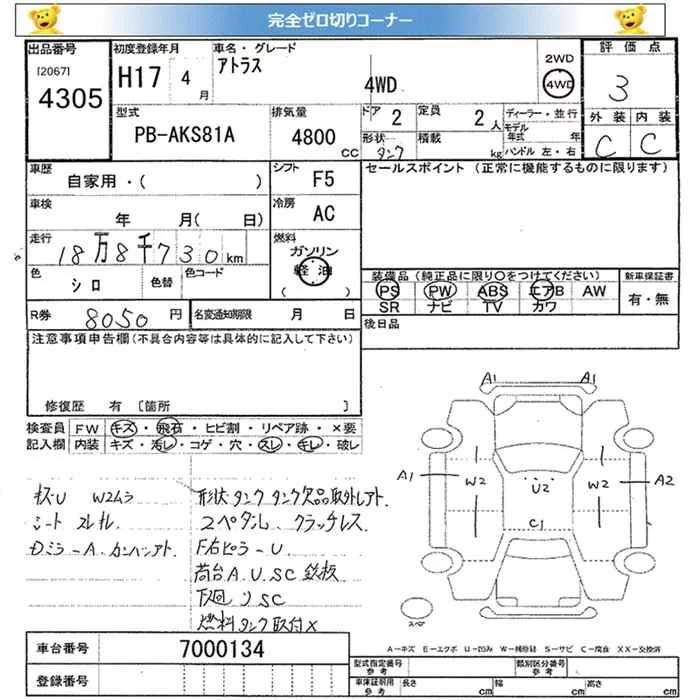 完全ゼロ切りコーナー
出品番号
[2067]
4305
初度登録年月
H17 4 月
車名・グレード
アトラス
4WD
2WD
4WD
評価点
3
外装 内装
C C
型式
PB-AKS81A
排気量
4800 CC
ドア 2
定員 2 人
形状 タンク
積載 kg
ディーラー・並行
モデル年式 年
ハンドル 左・右
車歴
自家用・( )
シフト
F5
セールスポイント (正常に機能するものに限ります)
車検
年 月( 日)
冷房
AC
走行
18万8千730km
燃料
ガソリン
軽油
( )
色
シロ
色替
色コード
装備品 (純正品に限り○をつけてください)
新車保証書
PS PW ABS エアB AW
SR ナビ TV カワ
有・無
R券 8050円
名変通知期限 月 日
後日品
注意事項申告欄(不具合内容等は具体的に記入して下さい)
修復歴 有 [箇所 ]
検査員 FW キズ・飛石・ヒビ割・リペア跡・×要
記入欄 内装 キズ・汚レ・コゲ・穴・スレ・キレ・破レ
キズU W2ムラ
シート スレ キレ
Dミラ-A、カンハンアト、
形状タンク タンク欠品取外しアト、
2ペダル、クラッチレス
F右ピラ-U
荷台A.U.SC 鉄板
下廻リSC
燃料タンク取付×
A1 A1
A1 W2 U2 W2 A2
C1
スペ
A-キズ E-エクボ U-凹み W-補修跡 S-サビ C-腐食 XX-交換済
車台番号 7000134
登録番号
型式指定番号
参考
類別区分番号
参考
車庫証明用
参考
長さ cm 幅 cm 高さ cm